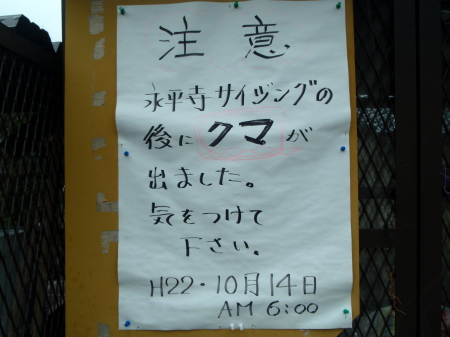 注意
永平寺サイジングの
後にクマが
出ました。
気をつけて
下さい。
H22・10月14日
AM 6:00